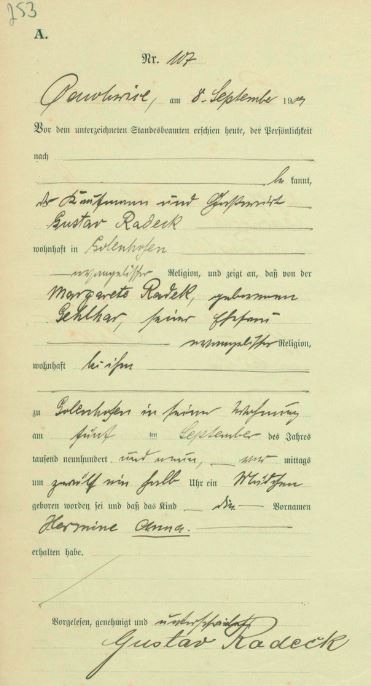 253
A.
Nr. 107
am 8. September 1909
Vor dem unterzeichneten Standesbeamten erschien heute, der Persönlichkeit
nach
be kannt,
der Kaufmann und Gastwirt
Gustav Radeck
wohnhaft in Golenhofen
evangelischer Religion, und zeigt an, daß von der
Margarete Radeck, geborenen
Gehlhar, seiner Ehefrau
evangelischer Religion,
wohnhaft bei ihm
zu Golenhofen in seiner Wohnung
am fünf ten September des Jahres
tausend neunhundert und neun, vor mittags
um zwölf ein halb Uhr ein Mädchen
geboren worden sei und daß das Kind die Vornamen
Hermine Anna.
erhalten habe.
Vorgelesen, genehmigt und unterschrieben
Gustav Radeck